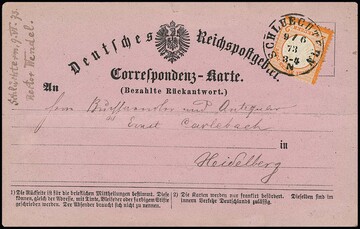 Deutsches Reichspostgebiet.
SCHLUECHTERN
9/6
73
Correspondenz-Karte.
(Bezahlte Rückantwort.)
An
Herrn Buchhändler und Antiquar
Ernst Carlebach
in
Heidelberg
1) Die Rückseite ist für die brieflichen Mittheilungen bestimmt. Diese können, gleich der Adresse, mit Tinte, Bleifeder oder farbigem Stifte geschrieben werden. Der Absender braucht sich nicht zu nennen.
2) Die Karten werden nur frankirt befördert. Dieselben sind im innern Verkehr Deutschlands zulässig.
Schlüchtern, 9. VI. 73.
Rector Wendel.